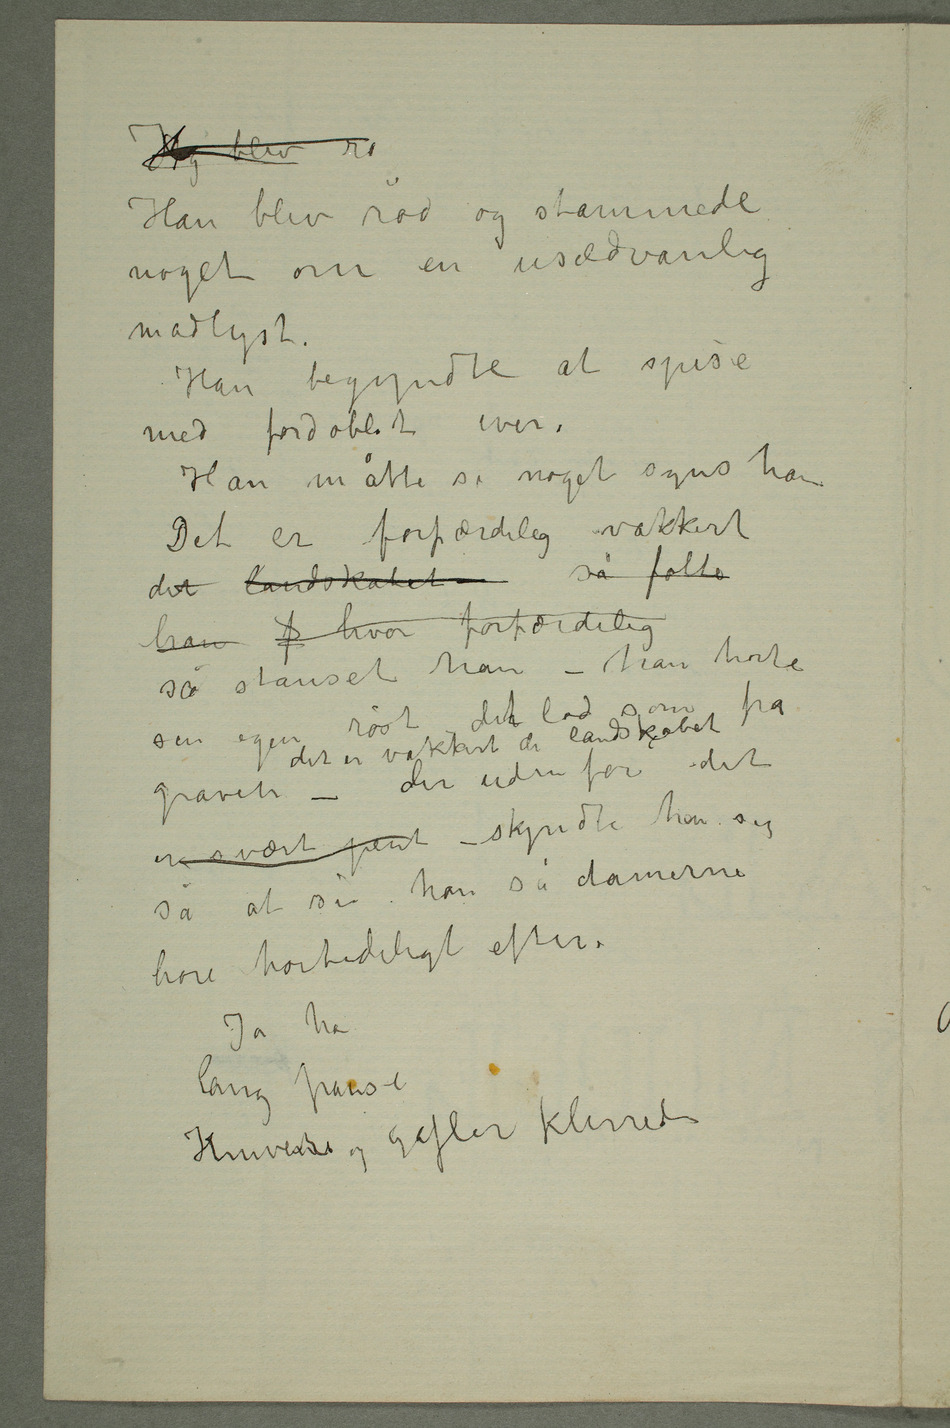 Jeg blev rø
Han blev rød og stammede
noget om en usædvanlig
madlyst.
Han begyndte at spise
med fordoblet iver.
Han måtte si noget syns han
Det er forfærdelig vakkert
det landskabet så følte
han f hvor forfærdelig
så stanset han – han hørte
sin egen røst det lød som fra
det er vakkert de landskabet
graven – der udenfor det
er svært pent – skyndte han sig
så at si han så damerne
høre høitideligt efter.
Ja ha
lang pause
Knivene og gafler klirrede